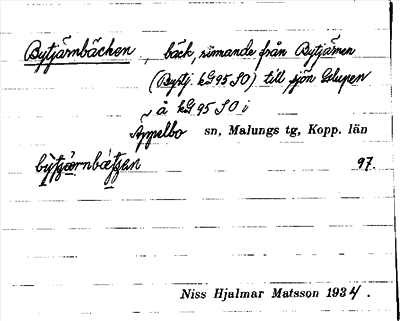 Bytjärnbäcken, bäck, rinnande från Bytjärnen
(Bytj. kG 95 SO) till sjön Glupen
å kG 95 SO i
Äppelbo sn, Malungs tg, Kopp. län
97.
Niss Hjalmar Matsson 1934.